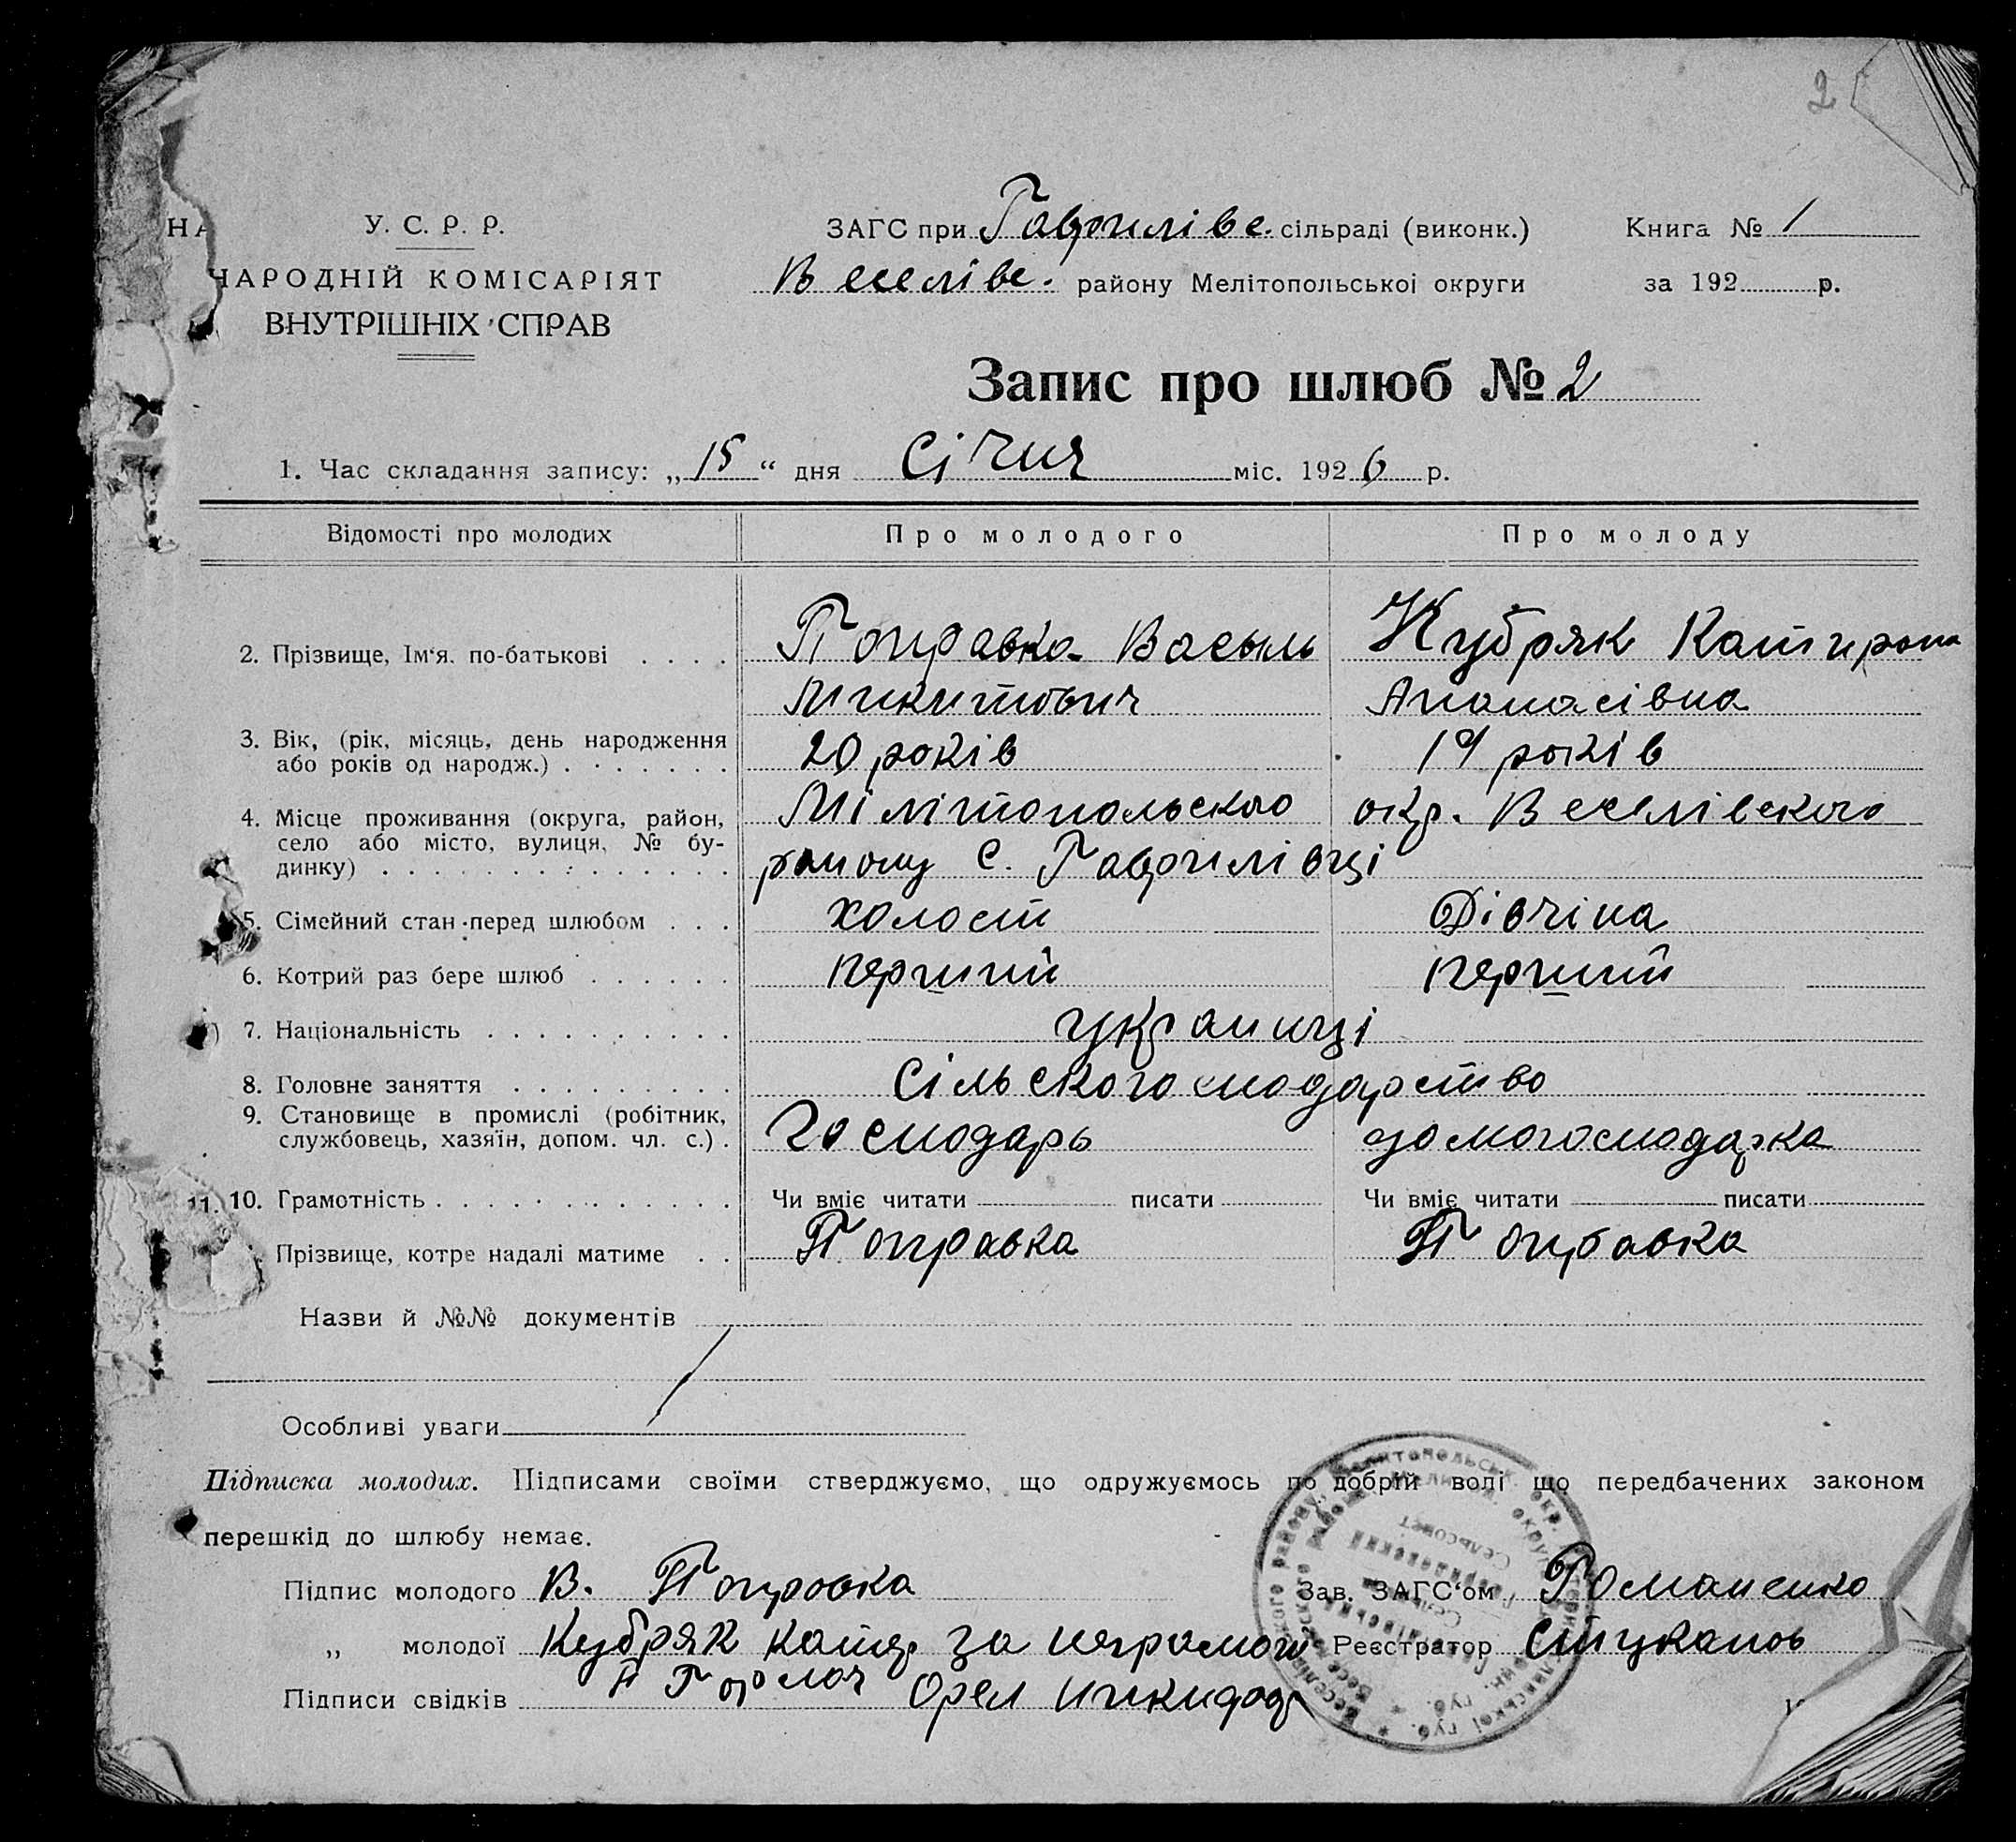 2
НА
У. С. Р. Р.
НАРОДНІЙ КОМІСАРІЯТ
ВНУТРІШНІХ СПРАВ
ЗАГС при Гаврилівс. сільраді (виконк.)
Веселівс. району Мелітопольськоі округи
Книга № 1
за 192 р.
Запис про шлюб № 2
1. Час складання запису: „15“ дня Січня міс. 1926 р.
Відомості про молодих Про молодого Про молоду
2. Прізвище, Ім‘я. по-батькові . . . . Поправка Васыль Кубряк Катирина
Микитович Апанасівна
3. Вік, (рік, місяць, день народження
або років од народж.) . . . . . . . 20 років 19 років
4. Місце проживання (округа, район, Мілітопольского окр. Веселівского
село або місто, вулиця, № бу-
динку) . . . . . . . . . . . . . . району с. Гаврилівці
5. Сімейний стан перед шлюбом . . . холост Дівчіна
6. Котрий раз бере шлюб . . . . . . перший перший
7. Національність . . . . . . . . . . украинці
8. Головне заняття . . . . . . . . . сільскогосподарство
9. Становище в промислі (робітник,
службовець, хазяїн, допом. чл. с.) . Господарь домогосподарка
11. 10. Грамотність . . . . . . . . . . . . Чи вміє читати писати Чи вміє читати писати
Прізвище, котре надалі матиме . . Поправка Поправка
Назви й №№ документів
Особливі уваги
Підписка молодих. Підписами своїми стверджуємо, що одружуємось по добрій волі що передбачених законом
перешкід до шлюбу немає.
Підпис молодого В. Поправка Зав. ЗАГС‘ом Романенко
„ молодої Кубряк катер за неграмотн Реєстратор
Підписи свідків Орел